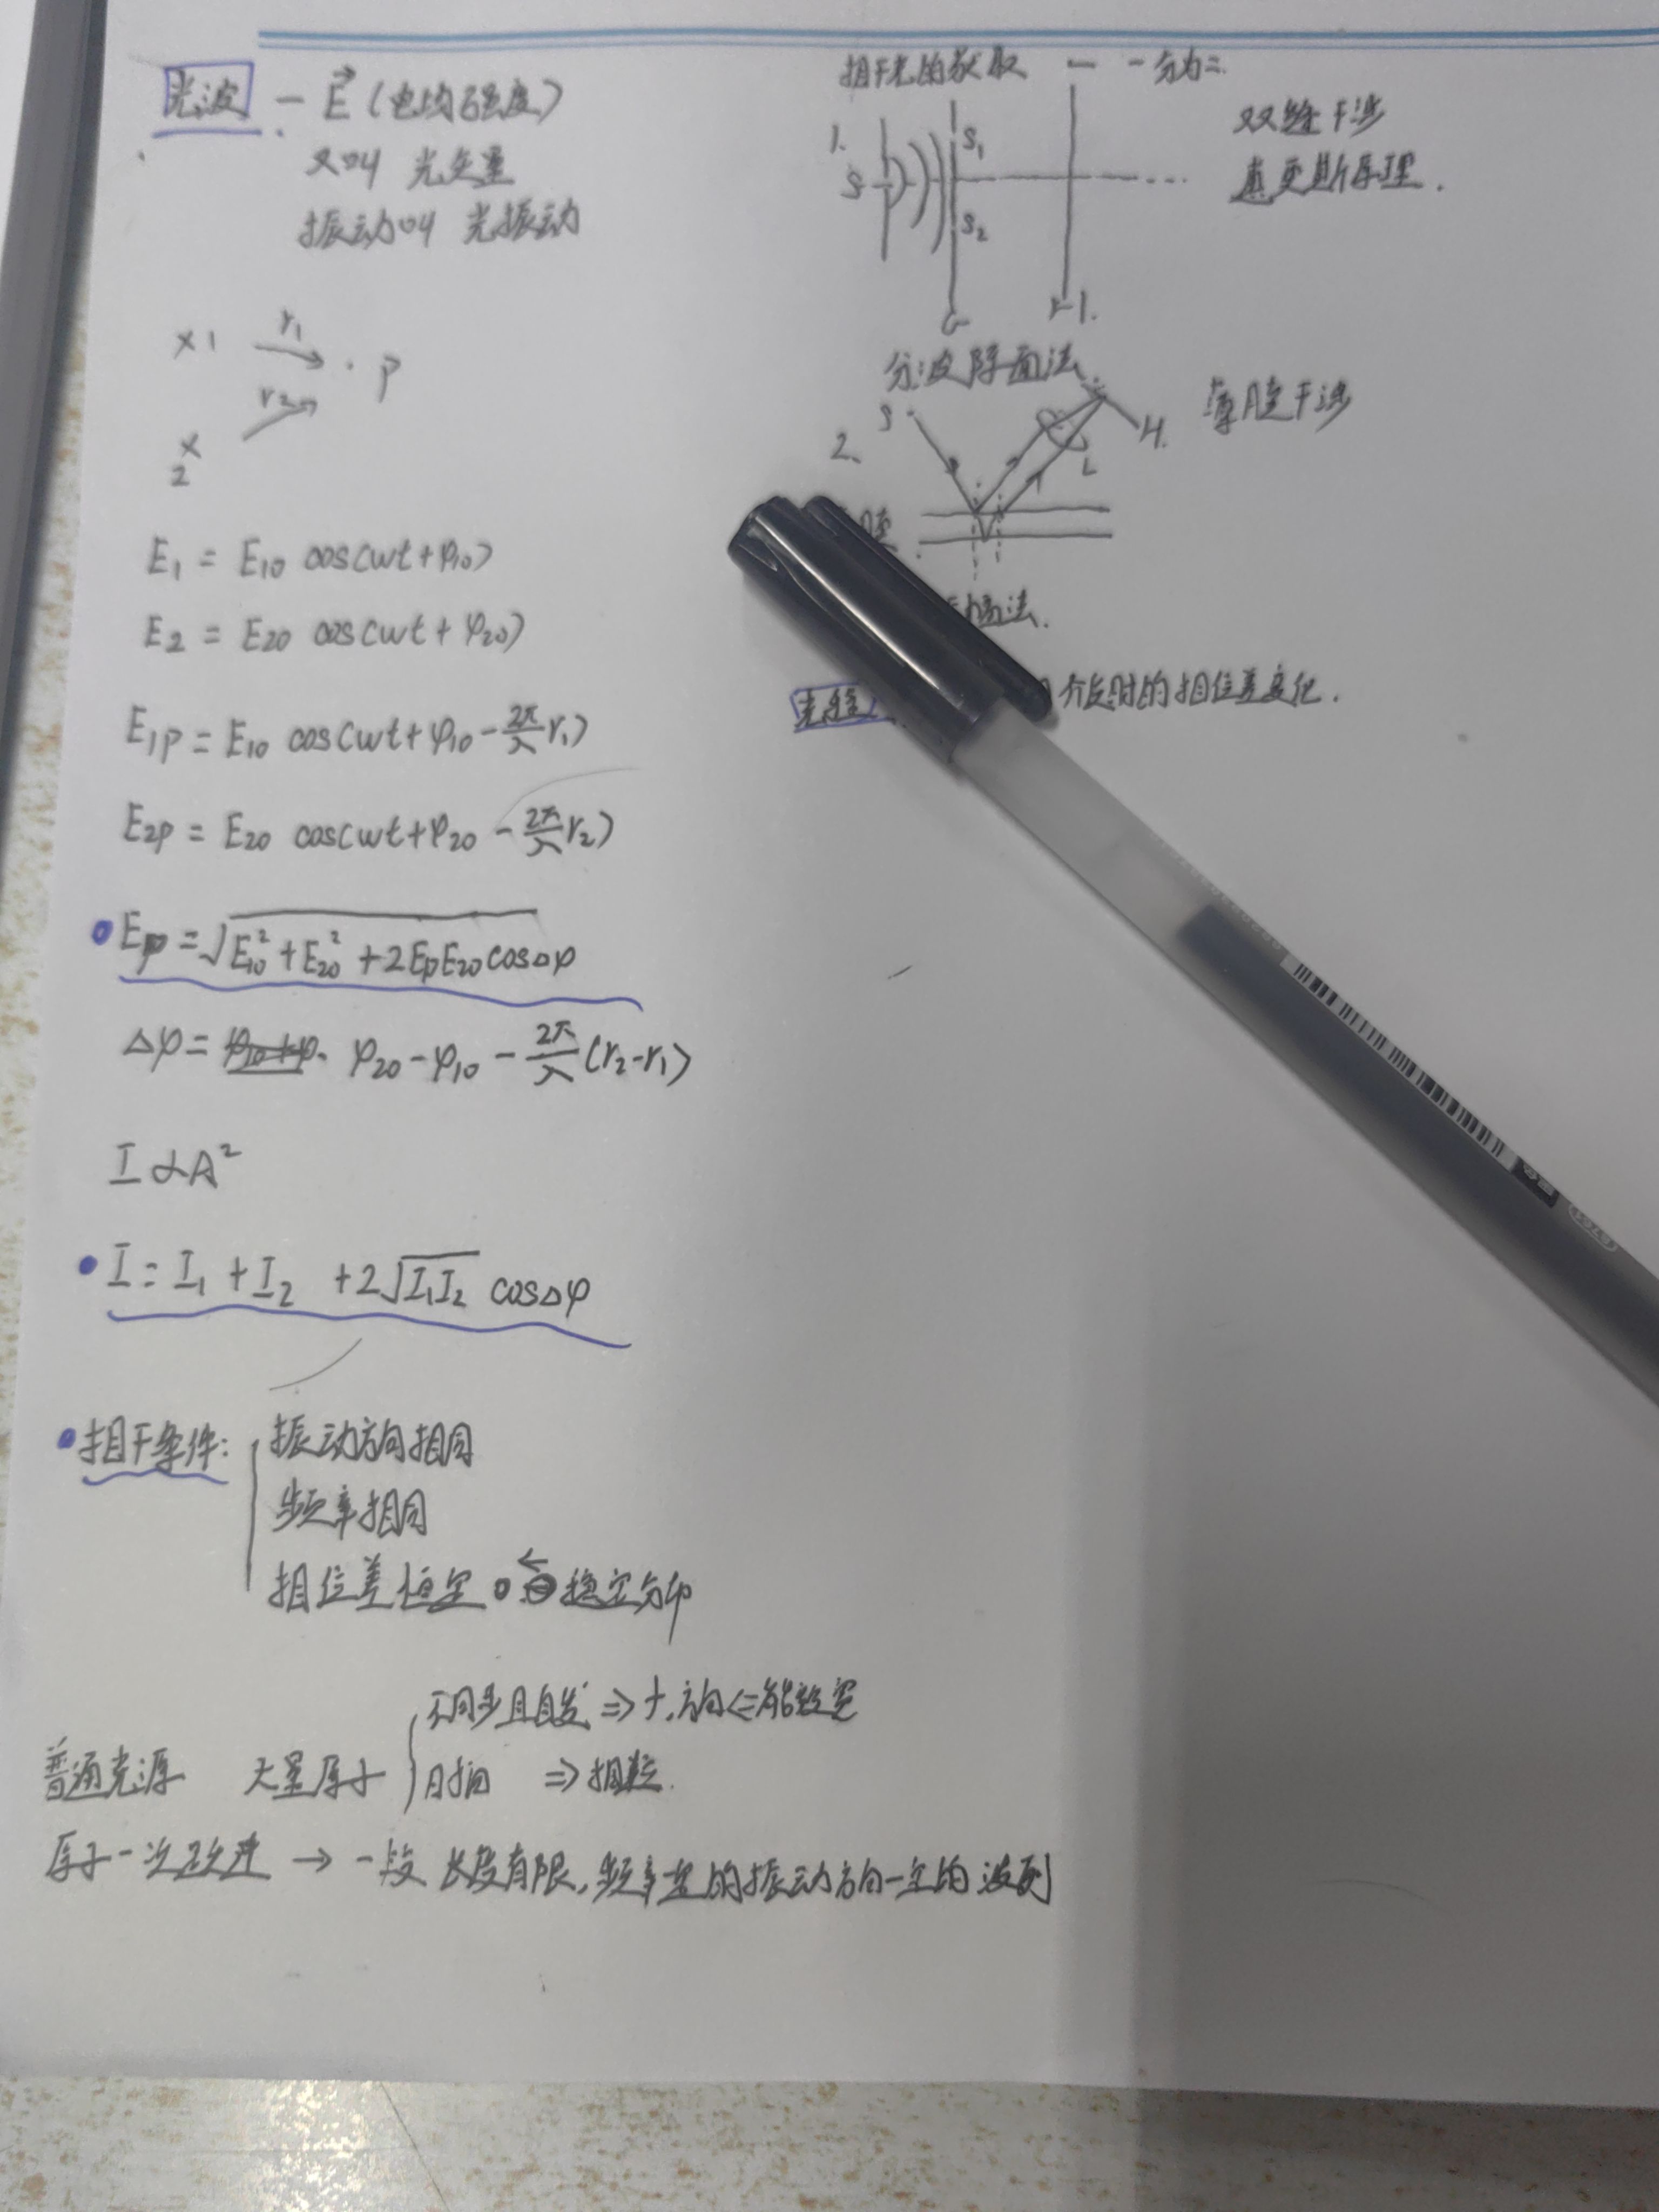 光波 — E⃗ (电场强度)
又叫 光矢量
振动叫 光振动
×1 r₁ · P
r₂
×
2
E₁ = E₁₀ cos(wt+φ₁₀)
E₂ = E₂₀ cos(wt+φ₂₀)
E₁p = E₁₀ cos(wt+φ₁₀-2π/λ r₁)
E₂p = E₂₀ cos(wt+φ₂₀-2π/λ r₂)
Ep = √(E₁₀²+E₂₀²+2EpE₂₀cosΔφ)
Δφ = φ₂₀-φ₁₀-2π/λ(r₂-r₁)
I∝A²
I = I₁ + I₂ +2√(I₁I₂) cosΔφ
相干条件:
振动方向相同
频率相同
相位差恒定 ← 稳定分布
普通光源 大量原子
不同步且自发 ⇒
⇒
原子一次跃迁 → 一段 长度有限,频率一定的振动方向一定的波列
相干光的获取 — 一分为二.
1.
S S₁
S₂
G H.
双缝干涉
惠更斯原理.
分波阵面法.
2.
S L H.
薄膜干涉
膜
幅法.
光程 介质时的相位差变化.